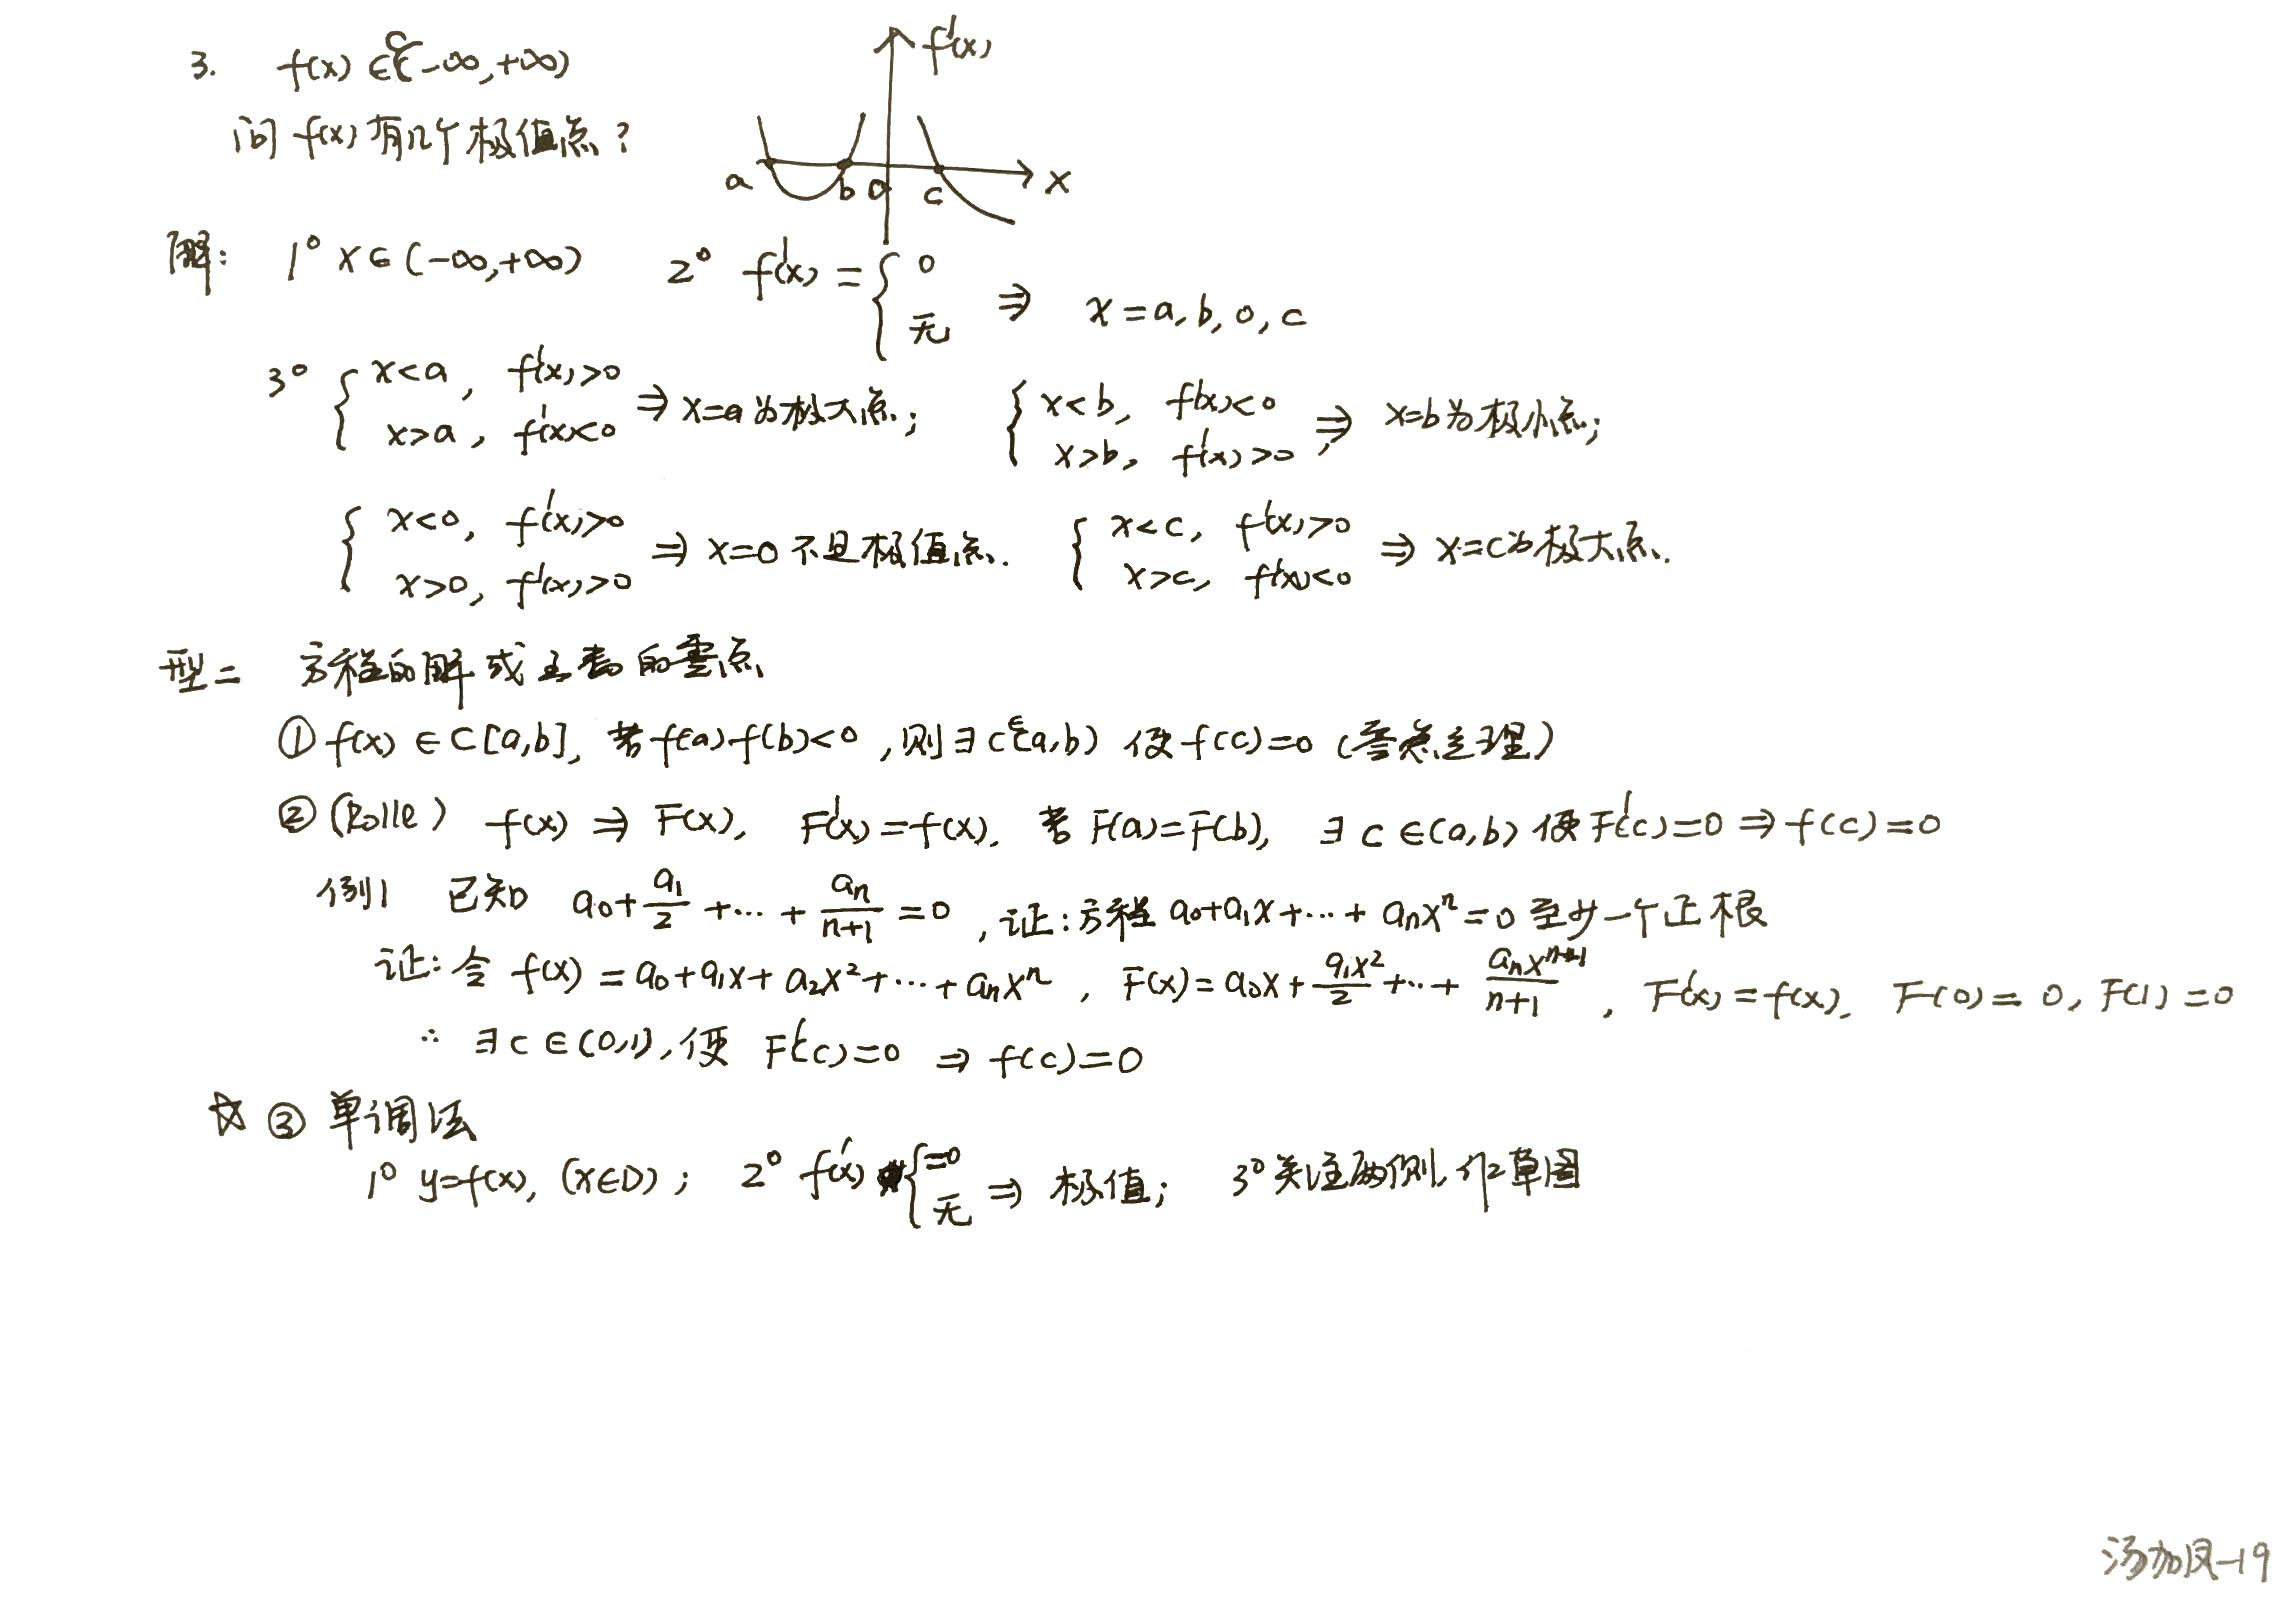 3. f(x) ∈ C(-∞,+∞)
问 f(x) 有几个极值点?
f'(x)
a b 0 c x
解: 1° x∈(-∞,+∞) 2° f'(x) = { 0 无 ⇒ x=a, b, 0, c
3° { x<a, f'(x)>0 x>a, f'(x)<0 ⇒ x=a 为极大点; { x<b, f'(x)<0 x>b, f'(x)>0, ⇒ x=b 为极小点;
{ x<0, f'(x)>0 x>0, f'(x)>0 ⇒ x=0 不是极值点. { x<c, f'(x)>0 x>c, f'(x)<0 ⇒ x=c 为极大点.
型二 方程的解或 的零点
① f(x) ∈ C[a,b], 若 f(a)f(b)<0, 则 ∃ c∈(a,b) 使 f(c)=0 (零点定理)
② (Rolle) f(x) ⇒ F(x), F'(x)=f(x). 若 F(a)=F(b), ∃ c ∈(a,b) 使 F'(c)=0 ⇒ f(c)=0
例1 已知 a₀+a₁/2+⋯+aₙ/(n+1)=0, 证: 方程 a₀+a₁x+⋯+aₙxⁿ=0 至少一个正根
证: 令 f(x)=a₀+a₁x+a₂x²+⋯+aₙxⁿ, F(x)=a₀x+a₁x²/2+⋯+aₙxⁿ⁺¹/(n+1), F'(x)=f(x), F(0)=0, F(1)=0
∴ ∃ c ∈(0,1), 使 F'(c)=0 ⇒ f(c)=0
☆ ③ 单调法
1° y=f(x), (x∈D); 2° f'(x) { =0 无 ⇒ 极值; 3° 关注两侧, 作草图
汤加凤-19